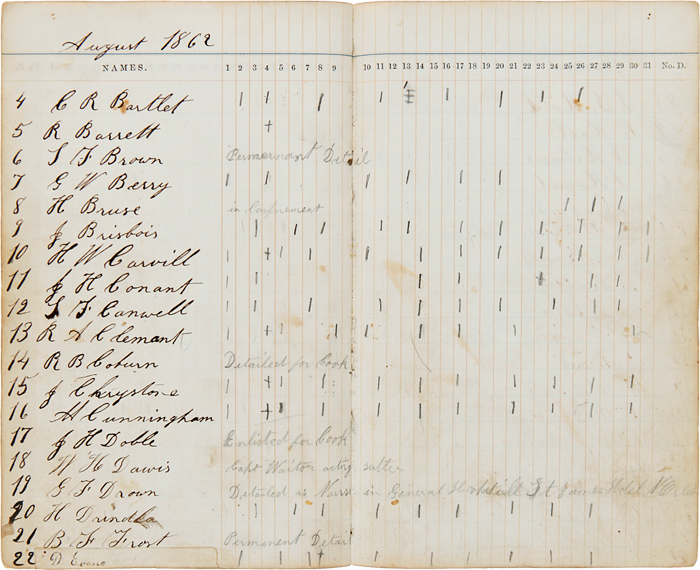 August 1862
NAMES. 1 2 3 4 5 6 7 8 9 10 11 12 13 14 15 16 17 18 19 20 21 22 23 24 25 26 27 28 29 30 31 No. D.
4 C R Bartlet
5 R Barrett
6 S F Brown Permermant Detail
7 G W Berry
8 H Bruse in Confinement
9 J Brisbois
10 H W Carvill
11 J H Conant
12 S F Canwell
13 R A Clemant
14 R B Coburn Detailed for Cook
15 J Chrystone
16 H Cunningham
17 J H Doble Enlisted for Cook
18 W H Dawis Capt acting
19 G F Drown Detailed as Nurse in General St James Hotel
20 H
21 B F Frost Permanent Detail
22 D Evans